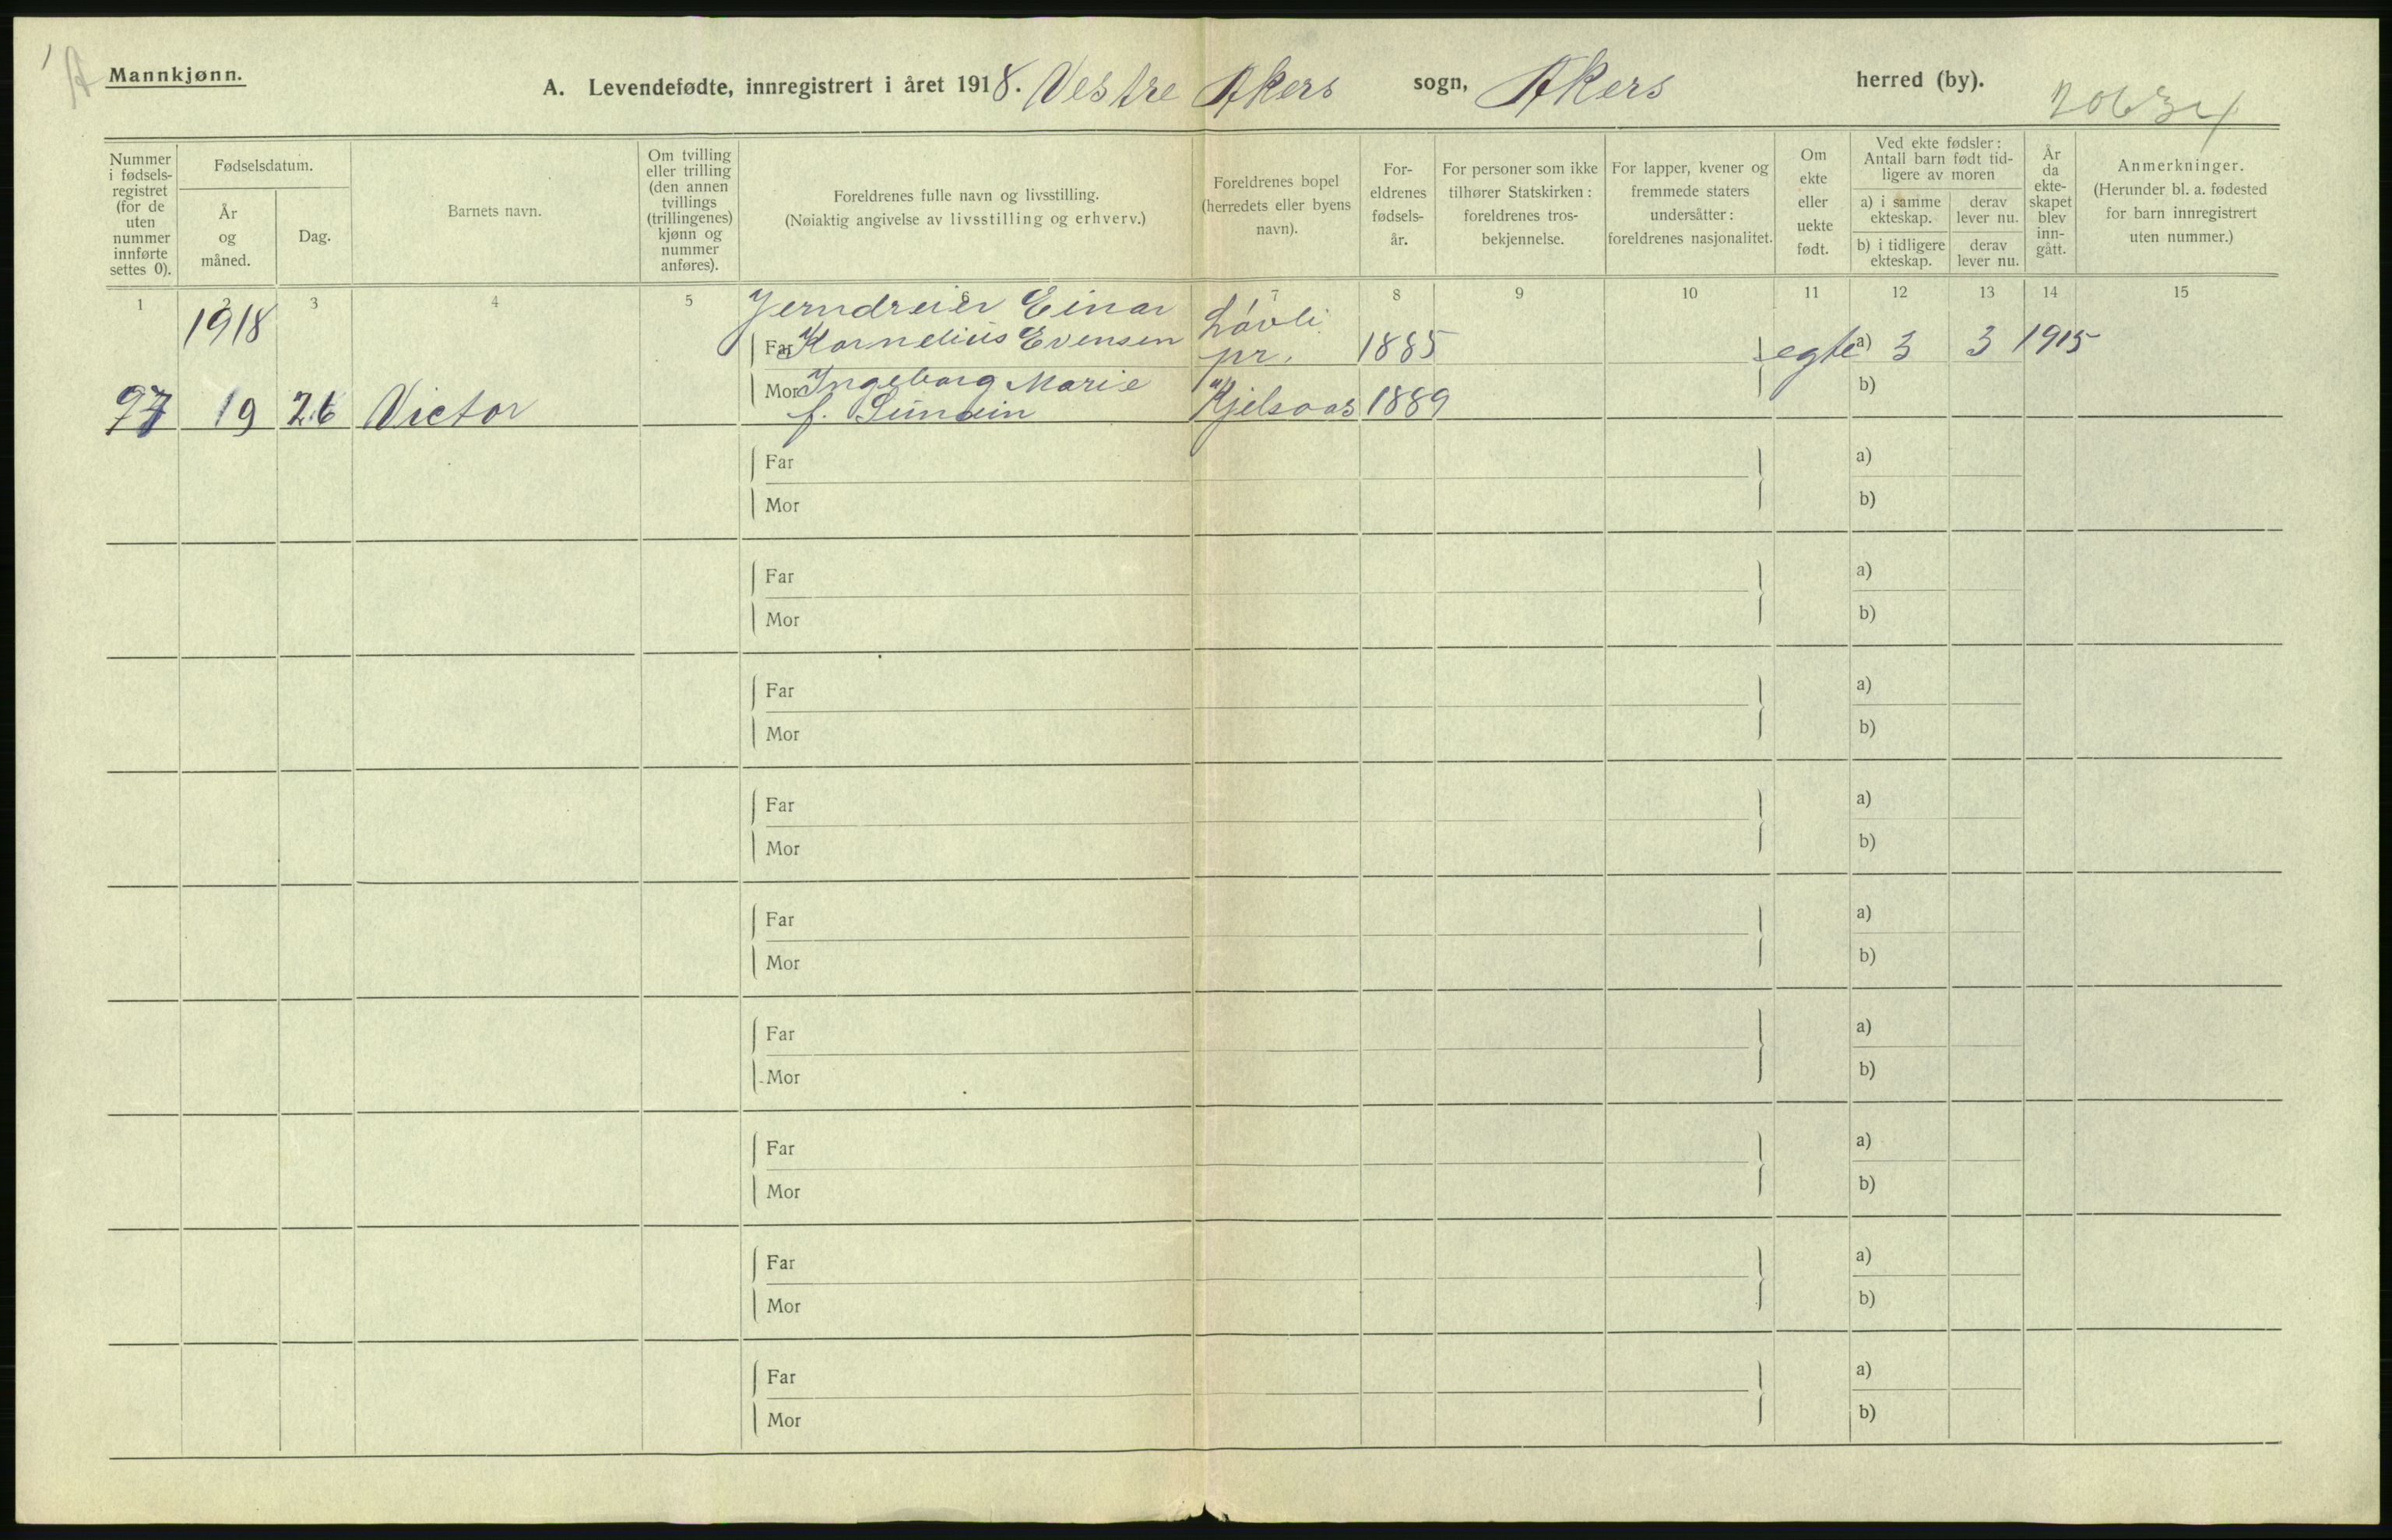 Mannkjønn.
A. Levendefødte, innregistrert i året 1918. Vestre Akers sogn, Akers herred (by).
Nummer i fødselsregistret (for de uten nummer innførte settes 0).
Fødselsdatum.
År og måned.
Dag.
Barnets navn.
Om tvilling eller trilling (den annen tvillings (trillingenes) kjønn og nummer anføres).
Foreldrenes fulle navn og livsstilling.
(Nøiaktig angivelse av livsstilling og erhverv.)
Foreldrenes bopel (herredets eller byens navn).
Foreldrenes fødselsår.
For personer som ikke tilhører Statskirken: foreldrenes trosbekjennelse.
For lapper, kvener og fremmede staters undersåtter: foreldrenes nasjonalitet.
Om ekte eller uekte født.
Ved ekte fødsler: Antall barn født tidligere av moren
a) i samme ekteskap.
derav lever nu.
b) i tidligere ekteskap.
derav lever nu.
År da ekteskapet blev inngått.
Anmerkninger.
(Herunder bl. a. fødested for barn innregistrert uten nummer.)
1 2 3 4 5 6 7 8 9 10 11 12 13 14 15
1918 Jerndreier Einar Løvli
Far Kornelius Evensen pr. 1885 egte a) 3 3 1915
Mor Ingeborg Marie b)
97 19 26 Victor f. Kjelsaas 1889
Far a)
Mor b)
Far a)
Mor b)
Far a)
Mor b)
Far a)
Mor b)
Far a)
Mor b)
Far a)
Mor b)
Far a)
Mor b)
Far a)
Mor b)
Far a)
Mor b)